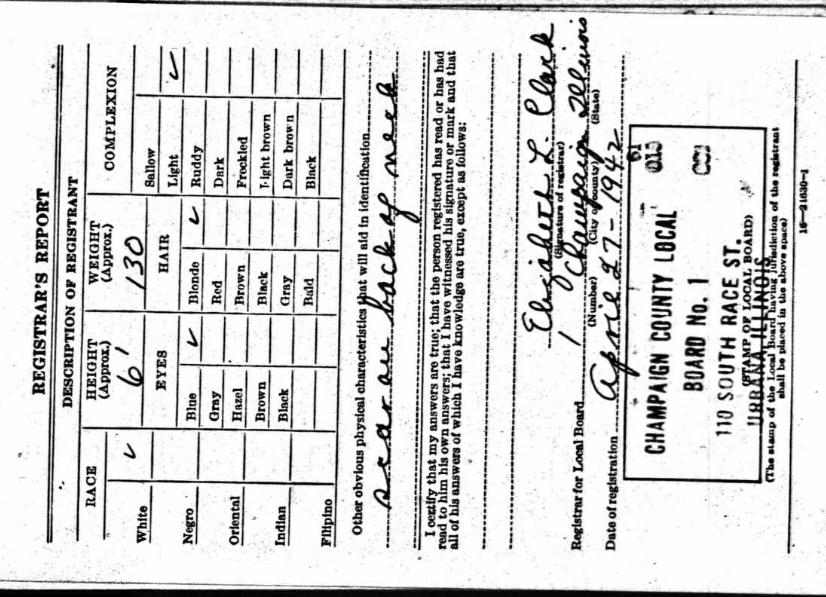 REGISTRAR'S REPORT
DESCRIPTION OF REGISTRANT
RACE HEIGHT (Approx.) WEIGHT (Approx.) COMPLEXION
6' 130
EYES HAIR
White ✓ Sallow
Blue ✓ Blonde ✓ Light ✓
Negro Gray Red Ruddy
Hazel Brown Dark
Oriental Brown Black Freckled
Black Gray Light brown
Indian Bald Dark brown
Filipino Black
Other obvious physical characteristics that will aid in identification
scar on back of neck
I certify that my answers are true; that the person registered has read or has had
read to him his own answers; that I have witnessed his signature or mark and that
all of his answers of which I have knowledge are true, except as follows:
Elizabeth L. Clark
(Signature of registrar)
Registrar for Local Board 1 Champaign Illinois
(Number) (City or county) (State)
Date of registration April 27-1942
CHAMPAIGN COUNTY LOCAL 61
BOARD No. 1 019
001
110 SOUTH RACE ST.
(STAMP OF LOCAL BOARD)
URBANA, ILLINOIS
(The stamp of the Local Board having jurisdiction of the registrant
shall be placed in the above space)
16—21630-1